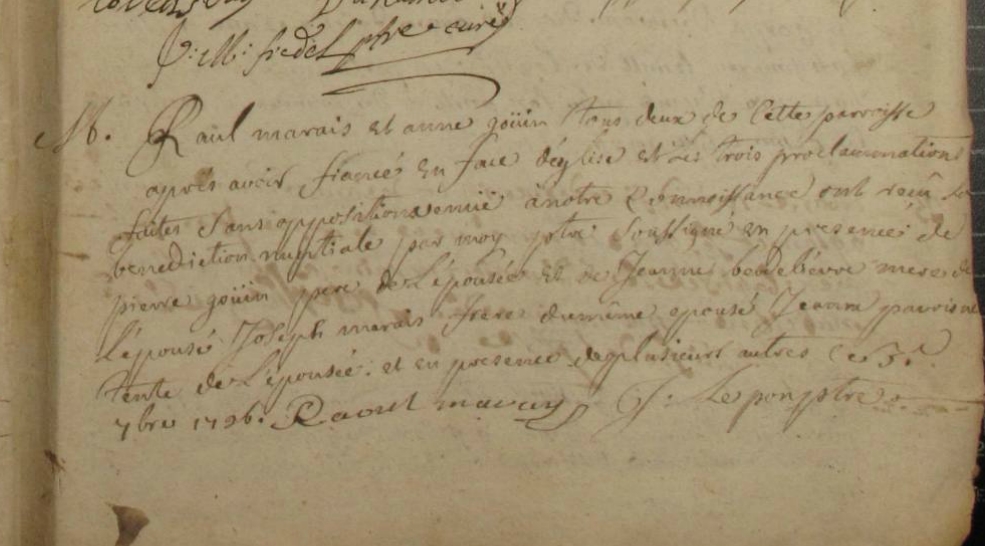 P: M: fredel ptre curé
M. Raul marais et anne goüin tous deux de cette parroisse
après avoir fiancé en face d'église et les trois proclamations
faites sans opposition venuë à notre connoissance ont reçû la
benediction nuptiale par moy ptre soussigné en presence de
pierre goüin pere de l'épousée et de Jeanne bedelievre mere de
l'épousé Joseph marais frere du même epousé Jeanne
tente de l'épousée. et en presence de plusieurs autres ce 3e
7bre 1726. Raoul marais J: Le pon ptre